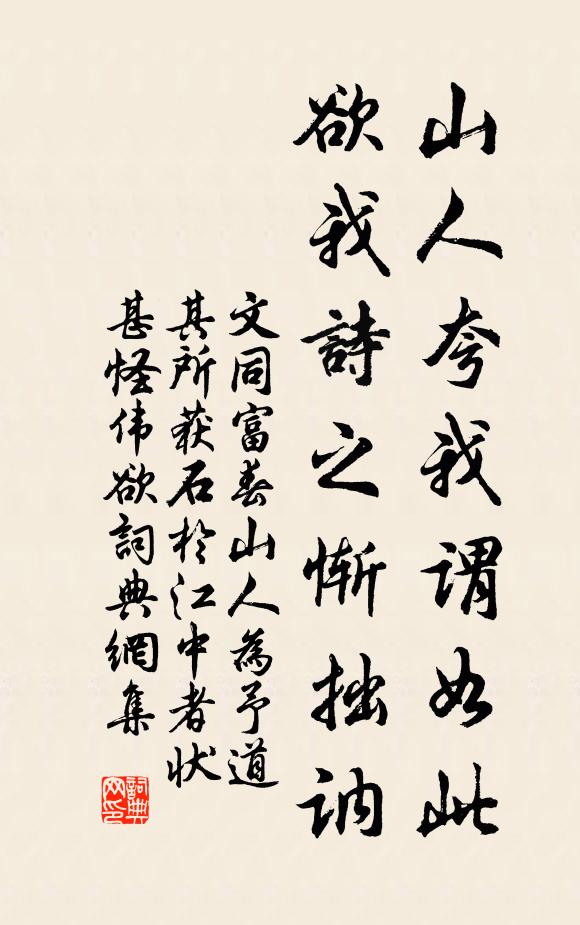 山人夸我谓如此
欲我詩之惭拙讷
文同富春山人為予道
其所获石於江中者状
甚怪伟欲詞典網集
詞典
网印